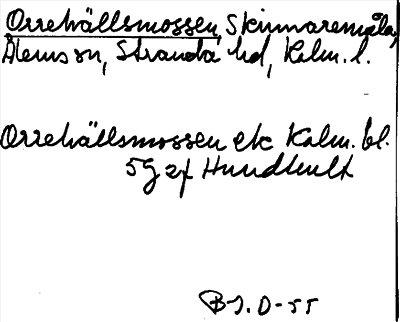 Orrehällsmossen, Skinnaremåla,
Ålems sn, Stranda hd, Kalm. l.
Orrehällsmossen ek Kalm. bl.
5g 2f Hundhult
B J. O-55